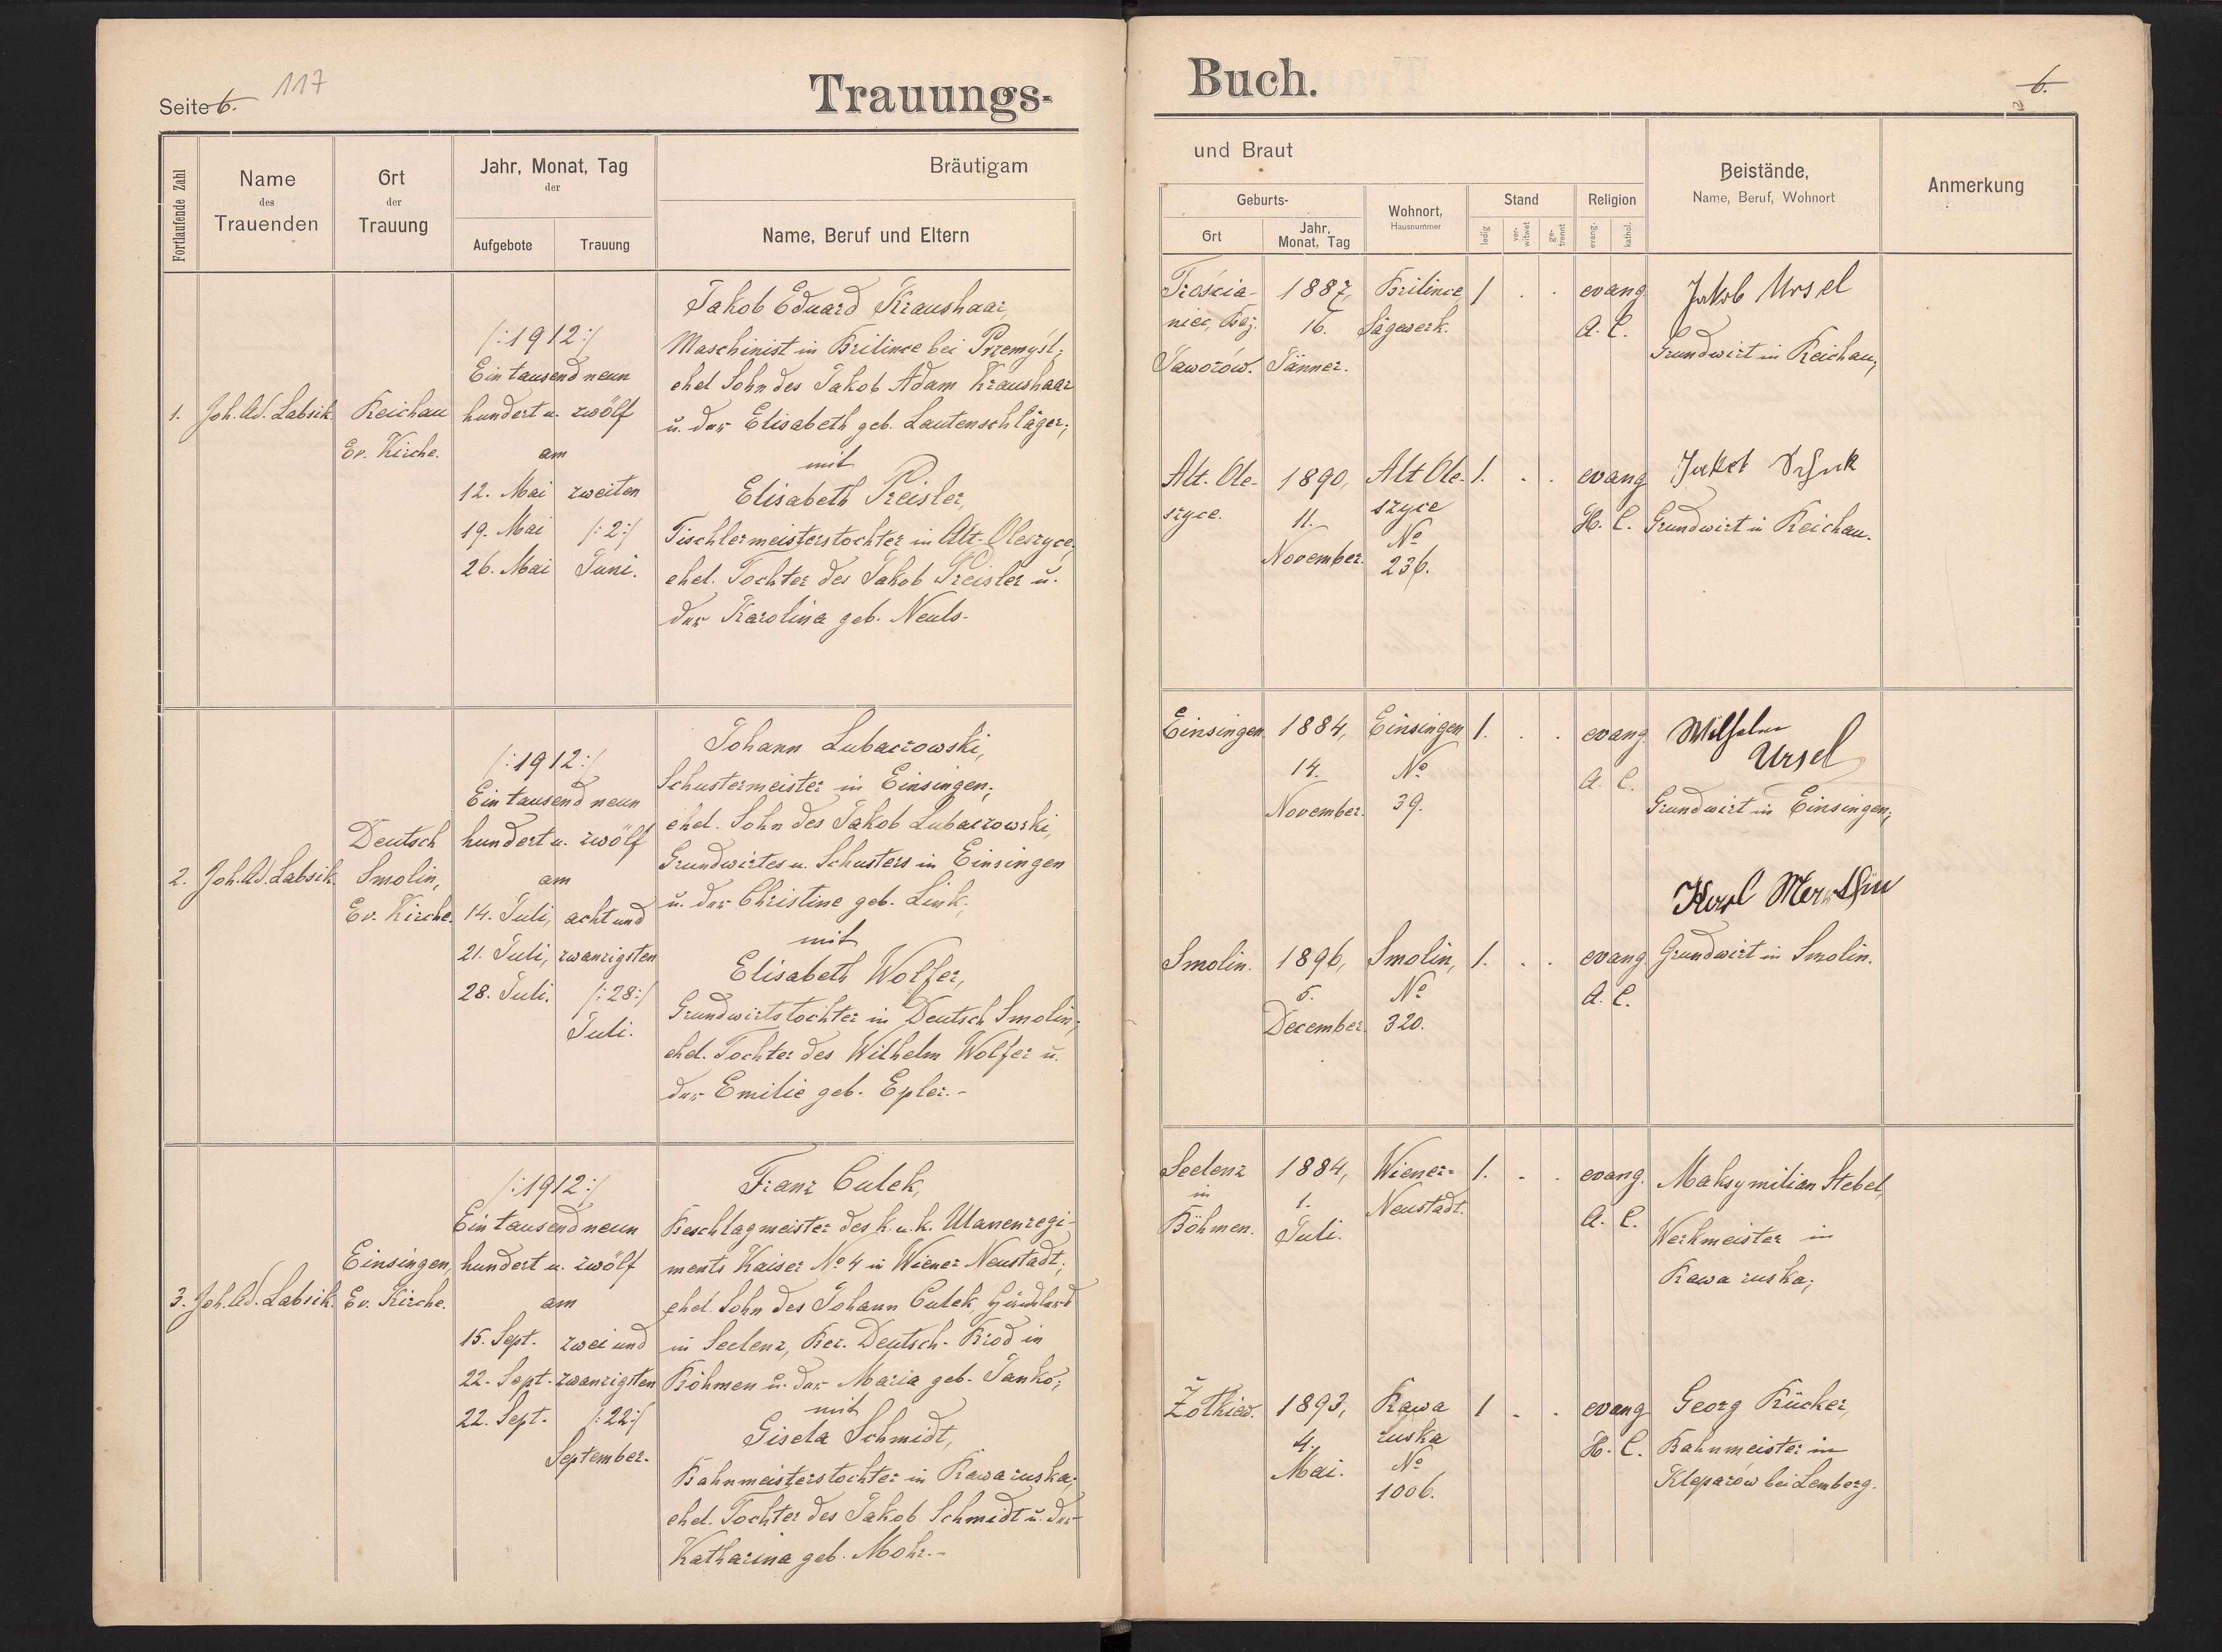 Seite 6.
117
Trauungs-
Fortlaufende Zahl
Name
des
Trauenden
Ort
der
Trauung
Jahr, Monat, Tag
der
Aufgebote
Trauung
Bräutigam
Name, Beruf und Eltern
1.
Joh. Ad. Labsik
Reichau
Ev. Kirche.
/:1912:/
Ein tausend neun
hundert u. zwölf
am
12. Mai
19. Mai
26. Mai
zweiten
/:2:/
Juni.
Jakob Eduard Kraushaar,
Maschinist in Brilince bei Przemyśl;
ehel. Sohn des Jakob Adam Kraushaar
u. der Elisabeth geb. Lautenschläger;
mit
Elisabeth Preisler,
Tischlermeisterstochter in Alt-Oleszyce,
ehel. Tochter des Jakob Preisler u.
der Karolina geb. Neuls.
2.
Joh. Ad. Labsik
Deutsch
Smolin,
Ev. Kirche.
/:1912:/
Ein tausend neun
hundert u. zwölf
am
14. Juli,
21. Juli,
28. Juli.
acht und
zwanzigsten
/:28:/
Juli.
Johann Lubaczowski,
Schustermeister in Einsingen;
ehel. Sohn des Jakob Lubaczowski,
Grundwirtes u. Schusters in Einsingen
u. der Christine geb. Link;
mit
Elisabeth Wolfer,
Grundwirtstochter in Deutsch Smolin;
ehel. Tochter des Wilhelm Wolfer u.
der Emilie geb. Epler.-
3.
Joh. Ad. Labsik.
Einsingen,
Ev. Kirche.
/:1912:/
Ein tausend neun
hundert u. zwölf
am
15. Sept.
22. Sept.
22. Sept.
zwei und
zwanzigsten
/:22:/
September.
Franz Culek,
Beschlagmeister des k. u. k. Ulanenregi-
ments Kaiser No 4 in Wiener Neustadt;
ehel. Sohn des Johann Culek,
in Seelenz, Bez. Deutsch-Brod in
Böhmen u. der Maria geb. Janko;
mit
Gisela Schmidt,
Bahnmeisterstochter in Rawa ruska;
ehel. Tochter des Jakob Schmidt u. der
Katharina geb. Mohr.-
Buch.
6.
und Braut
Geburts-
Ort
Jahr,
Monat, Tag
Wohnort,
Hausnummer
Stand
ledig
ver-
witwet
ge-
trennt
Religion
evang.
kathol.
Beistände,
Name, Beruf, Wohnort
Anmerkung
Trościa-
niec, Bez.
Jaworów.
1887,
16.
Jänner.
Brilince,
Sägewerk.
1 . .
evang
A. C.
Jakob Ursel
Grundwirt in Reichau;
Alt-Ole-
szyce.
1890,
11.
November.
Alt Ole-
szyce
No
236.
1. . .
evang
H. C.
Jakob
Grundwirt in Reichau.
Einsingen.
1884,
14.
November.
Einsingen
No
39.
1. . .
evang.
A. C.
Wilhelm
Ursel
Grundwirt in Einsingen;
Karl
Smolin.
1896,
5.
December.
Smolin,
No
320.
1. . .
evang.
A. C.
Grundwirt in Smolin.
Seelenz
in
Böhmen.
1884,
1.
Juli.
Wiener-
Neustadt.
1. . .
evang.
A. C.
Maksymilian Stebel,
Werkmeister in
Rawa ruska;
Żółkiew.
1893,
4.
Mai.
Rawa
ruska
No
1006.
1 . .
evang
H. C.
Georg Rücker,
Bahnmeister in
Kleparów bei Lemberg.